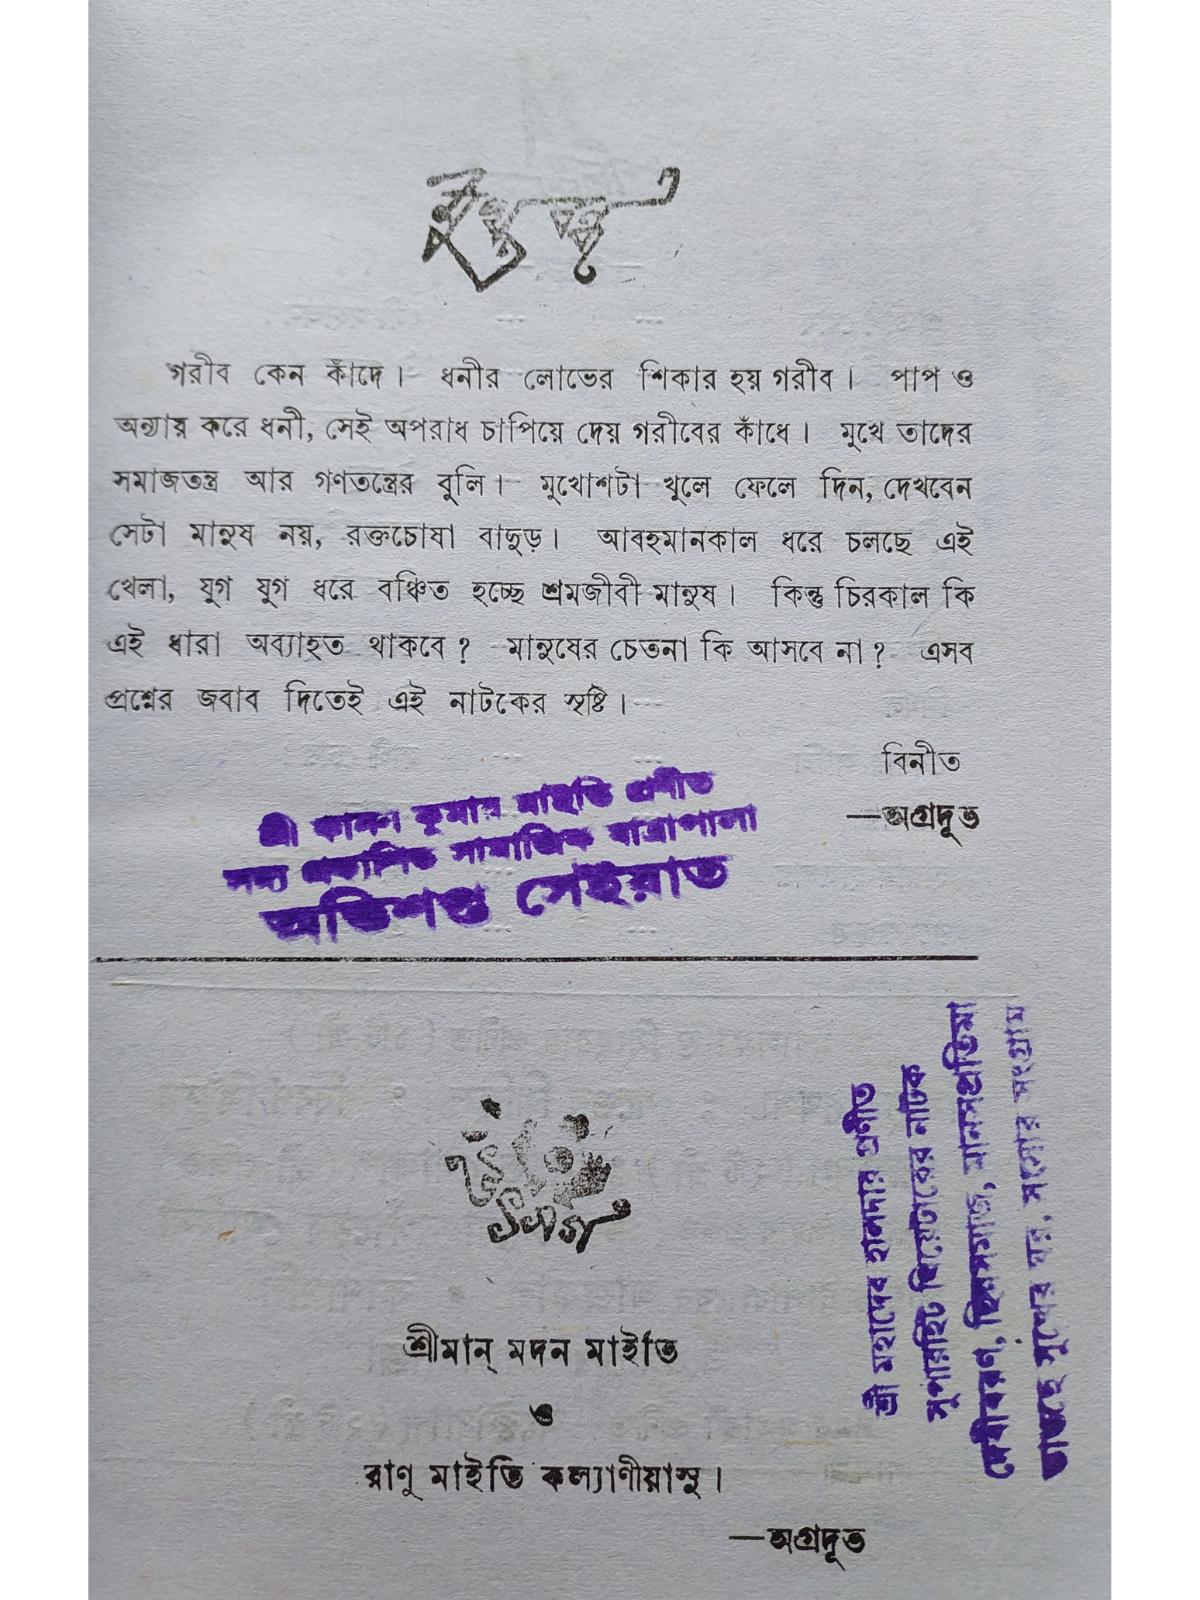 গরীব কেন কাঁদে। ধনীর লোভের শিকার হয় গরীব। পাপ ও
অন্যায় করে ধনী, সেই অপরাধ চাপিয়ে দেয় গরীবের কাঁধে। মুখে তাদের
সমাজতন্ত্র আর গণতন্ত্রের বুলি। মুখোশটা খুলে ফেলে দিন, দেখবেন
সেটা মানুষ নয়, রক্তচোষা বাদুড়। আবহমানকাল ধরে চলছে এই
খেলা, যুগ যুগ ধরে বঞ্চিত হচ্ছে শ্রমজীবী মানুষ। কিন্তু চিরকাল কি
এই ধারা অব্যাহত থাকবে? মানুষের চেতনা কি আসবে না? এসব
প্রশ্নের জবাব দিতেই এই নাটকের সৃষ্টি।
বিনীত
—অগ্রদূত
শ্রী কুমার মাইতি প্রণীত
সদ্য প্রকাশিত সামাজিক যাত্রাপালা
অভিশপ্ত সেইরাত
শ্রীমান্ মদন মাইতি
ও
রাণু মাইতি কল্যাণীয়াসু।
—অগ্রদূত
শ্রী মহাদেব হালদার প্রণীত
সুপারহিট থিয়েটারের নাটক
দেবীবরণ, মানসপ্রতিমা
ভাঙ্গছে সুখের ঘর, সংগ্রাম